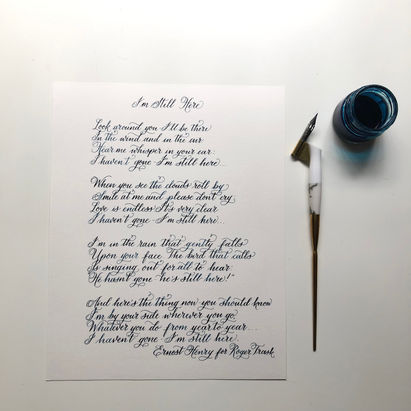 I'm Still Here
Look around you I'll be there
In the wind and in the air
Hear me whisper in your ear
I haven't gone I'm still here...
When you see the clouds roll by
Smile at me and please don't cry
Love is endless It's very clear
I haven't gone - I'm still here...
I'm in the rain that gently falls
Upon your face The bird that calls
Is singing out for all to hear
He hasn't gone "he's still here!"
And here's the thing now you should know
I'm by your side wherever you go
Whatever you do from year to year...
I haven't gone - I'm still here.
Ernost Henry for Roger Trask